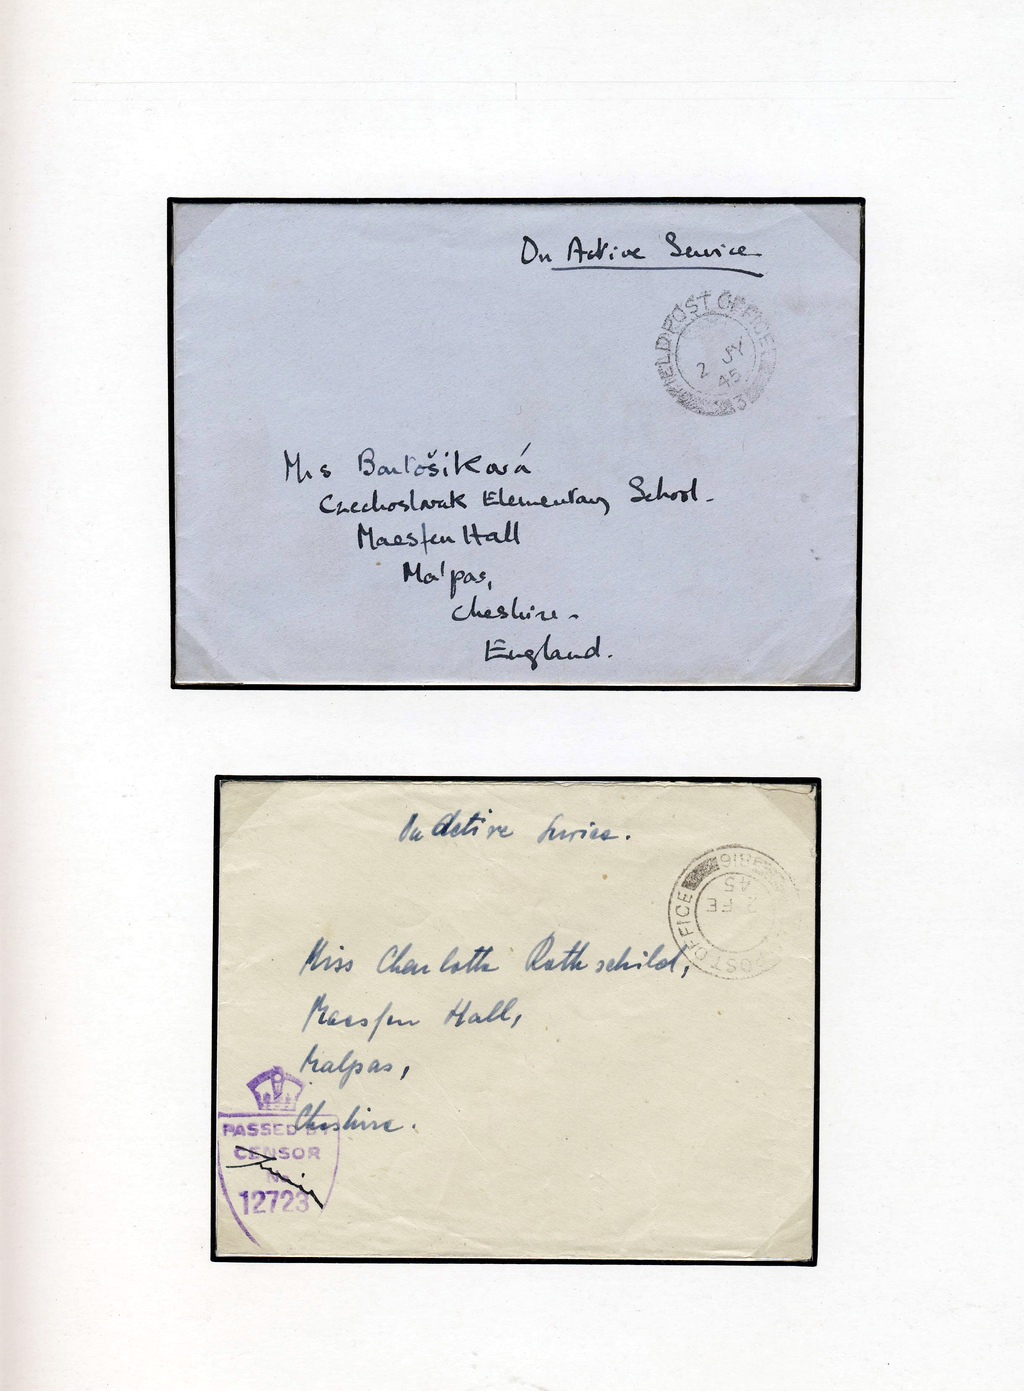 On Active Service
FIELD POST OFFICE
2 JY
45
Mrs Bartošiková
Czechoslovak Elementary School.
Maesfen Hall
Malpas,
Cheshire.
England.
On Active Service.
POST OFFICE
FE
45
Miss Charlotte Rothschild,
Maesfen Hall,
Malpas,
Cheshire.
PASSED BY
CENSOR
No
12723